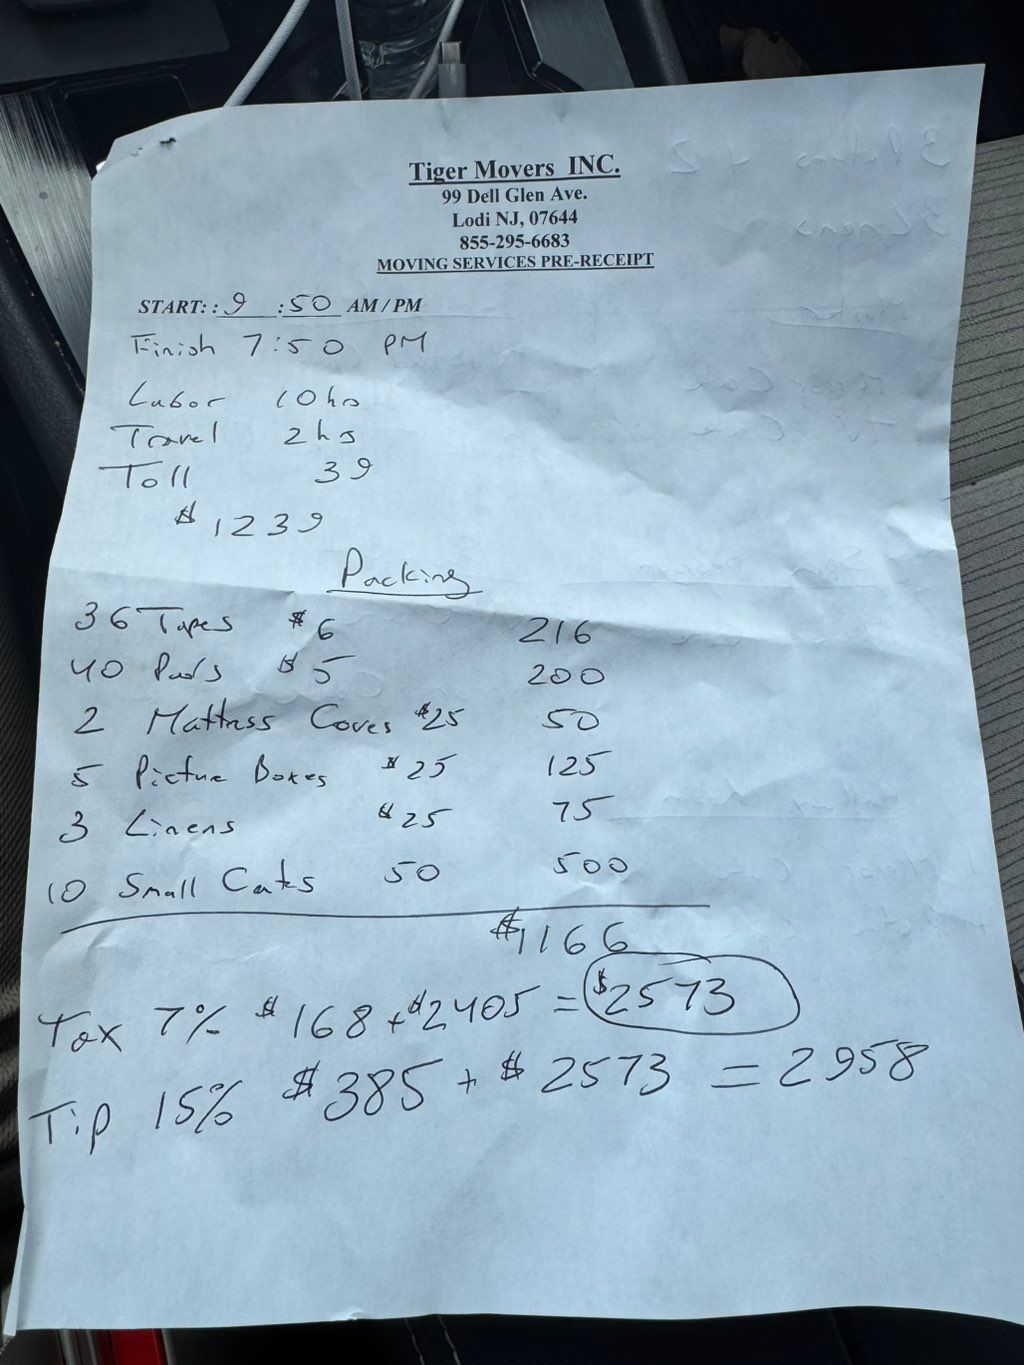 Tiger Movers INC.
99 Dell Glen Ave.
Lodi NJ, 07644
855-295-6683
MOVING SERVICES PRE-RECEIPT
START: : 9 : 50 AM / PM
Finish 7:50 PM
Labor 10 hrs
Travel 2 hrs
Toll 39
$ 1239
Packing
36 Tapes $6 216
40 Pads $5 200
2 Mattress Coves $25 50
5 Picture Boxes $25 125
3 Linens $25 75
10 Small Cats 50 500
$1166
Tax 7% $168 + $2405 = $2573
Tip 15% $385 + $2573 = 2958